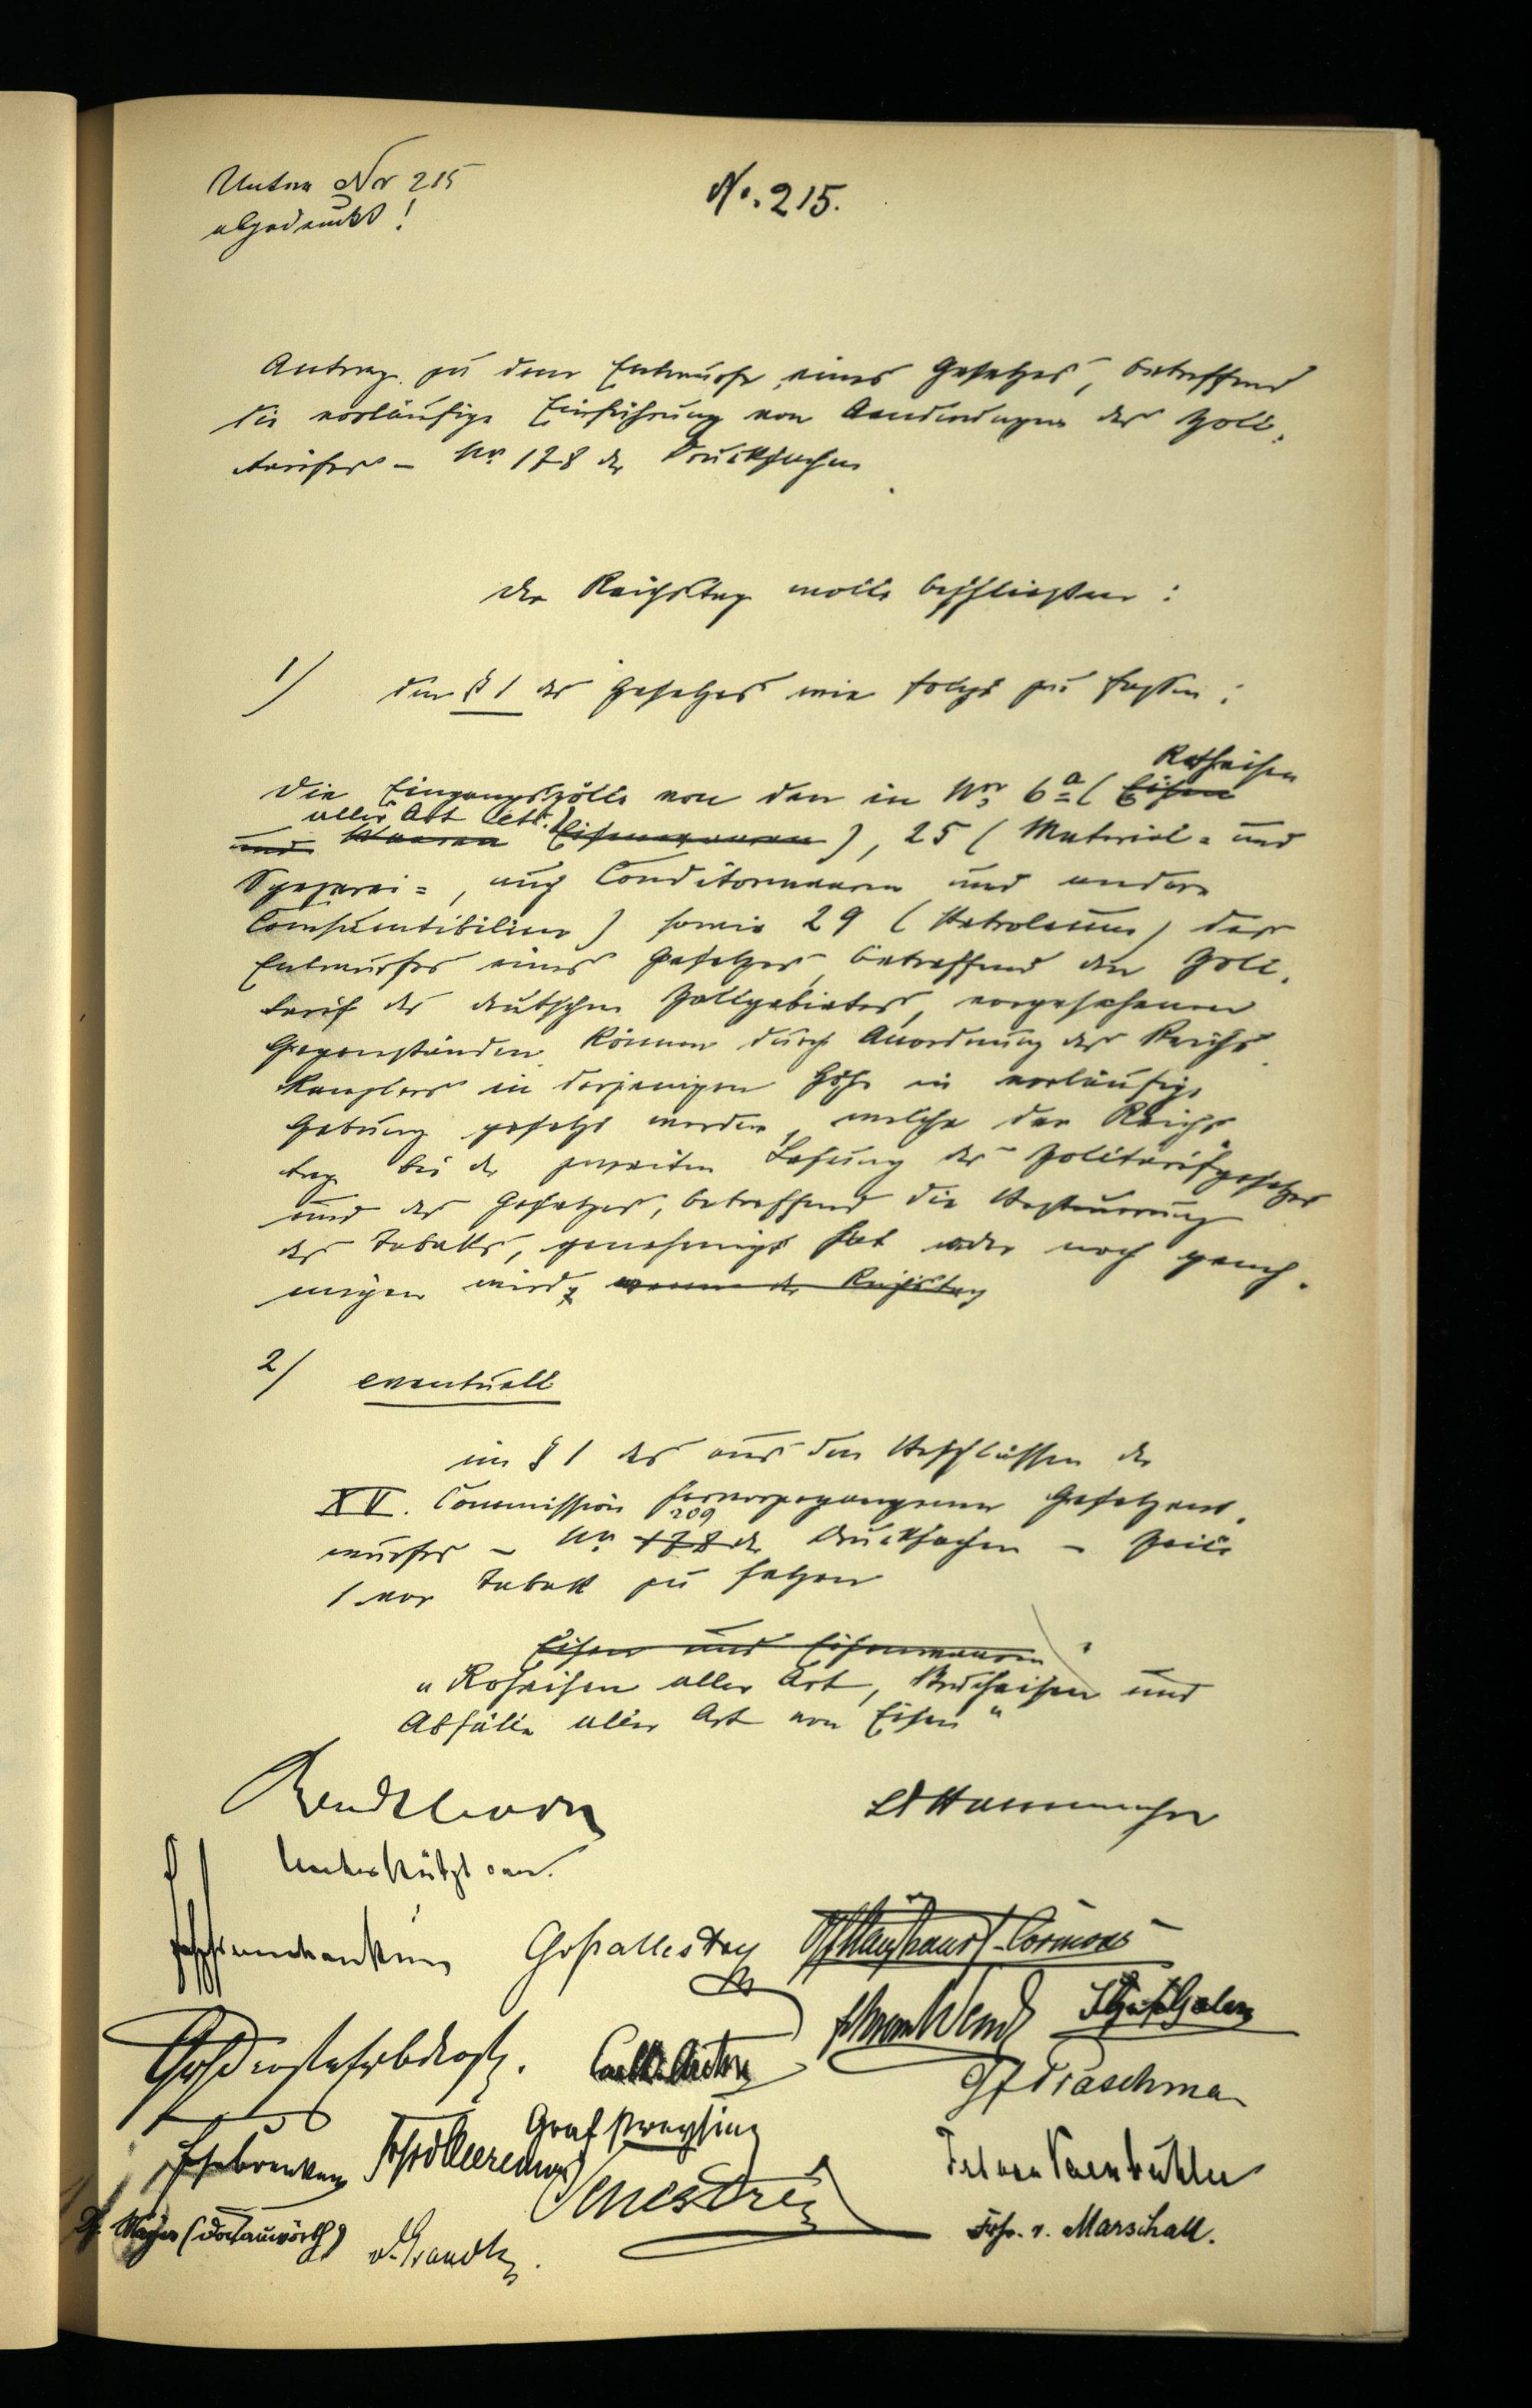 Unter Nr 215
abgedruckt!
No. 215.
Antrag zu dem Entwurfe eines Gesetzes, betreffend
die vorläufige Einführung von Aenderungen des Zoll-
tarifes – No 178 der Drucksachen
Der Reichstag wolle beschließen:
1) den § 1 des Gesetzes wie folgt zu fassen:
Roheisen
Die Eingangszölle von den in Nr. 6a (Eisen
aller Art etc.)
und Waaren Eisenwaaren), 25 (Material- und
Spezerei-, auch Conditorwaaren und andere
Consumtibilien) sowie 29 (Petroleum) des
Entwurfes eines Gesetzes, betreffend den Zoll-
tarif des deutschen Zollgebietes, vorgesehenen
Gegenständen können durch Anordnung des Reichs-
kanzlers in derjenigen Höhe in vorläufige
Hebung gesetzt werden, welche der Reichs-
tag bei der zweiten Lesung des Zolltarifgesetzes
und des Gesetzes, betreffend die Besteuerung
des Tabaks, genehmigt hat oder noch geneh-
migen wird, wenn der Reichstag
2) eventuell
im § 1 des aus den Beschlüssen der
XV. Commission hervorgegangenen Gesetzent-
209
wurfes – No 178 der Drucksachen – Zeile
1 vor Tabak zu setzen
Eisen und Eisenwaaren"
"Roheisen aller Art, Brucheisen und
Abfälle aller Art von Eisen"
Dr Hammacher
Unterstützt von
Graf Ballestrem
Frh von Wendt
Gf Praschma
Graf Preysing
Senestréy
Frh von Varnbühler
Dr. Mayer (Donauwörth)
v. Grand
Frhr. v. Marschall.